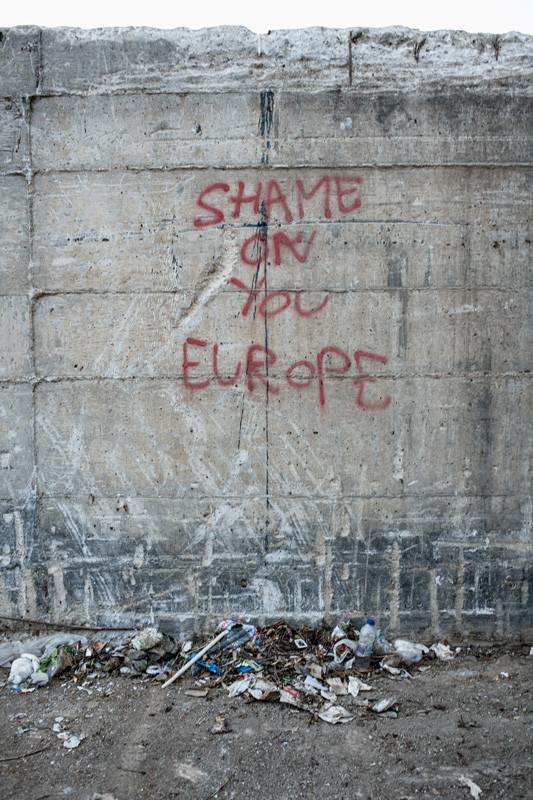 SHAME
ON
YOU
EUROPE